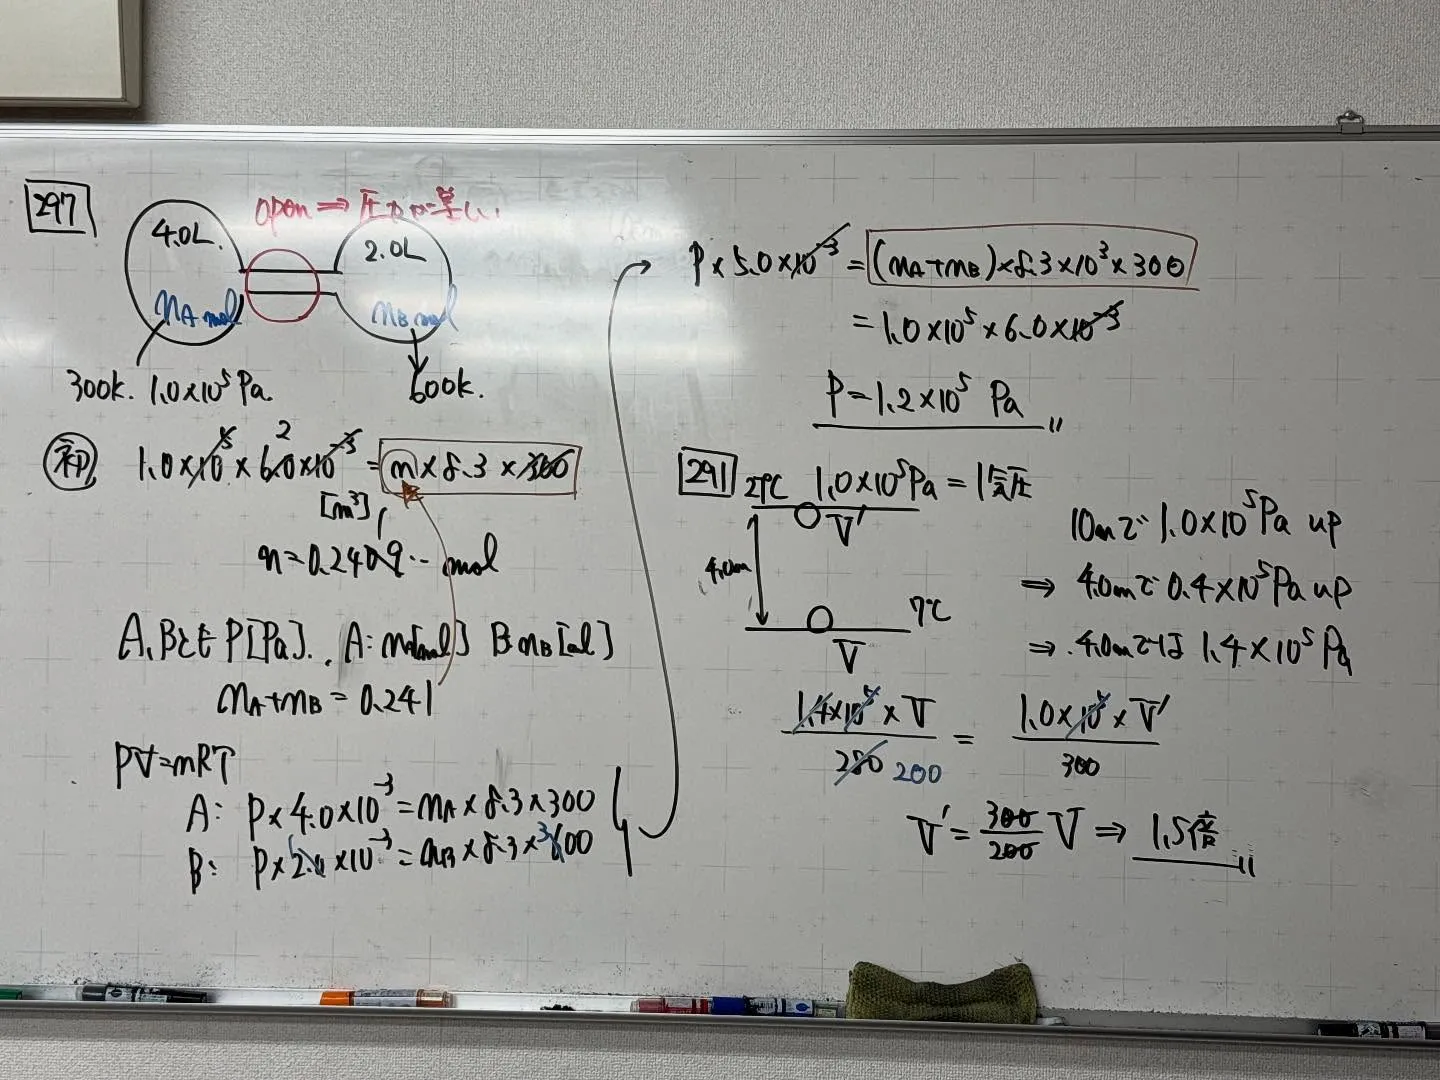 297
open ⇒ 圧力は等しい
4.0L.
2.0L
nA mol
nB mol
300k. 1.0×10⁵ Pa.
600k.
初 1.0×10⁵ × 6.0×10⁻³ = n × 8.3 × 300
2
[m³]
n=0.2409‥ mol
A,Bとも P[Pa]. A: nA[mol] B: nB[mol]
nA+nB = 0.241
PV=nRT
A: P×4.0×10⁻³=nA×8.3×300
B: P×2.0×10⁻³=nB×8.3×600
1
3
P×5.0×10⁻³ = (nA+nB)×8.3×10³×300
= 1.0×10⁵×6.0×10⁻³
P=1.2×10⁵ Pa
291
27℃ 1.0×10⁵Pa = 1気圧
V'
4.0m
7℃
V
10mで 1.0×10⁵Pa up
⇒ 4.0mで 0.4×10⁵Pa up
⇒ 4.0mでは 1.4×10⁵Pa
1.4×10⁵×V / 280 = 1.0×10⁵×V' / 300
200
V' = 300/200 V ⇒ 1.5倍